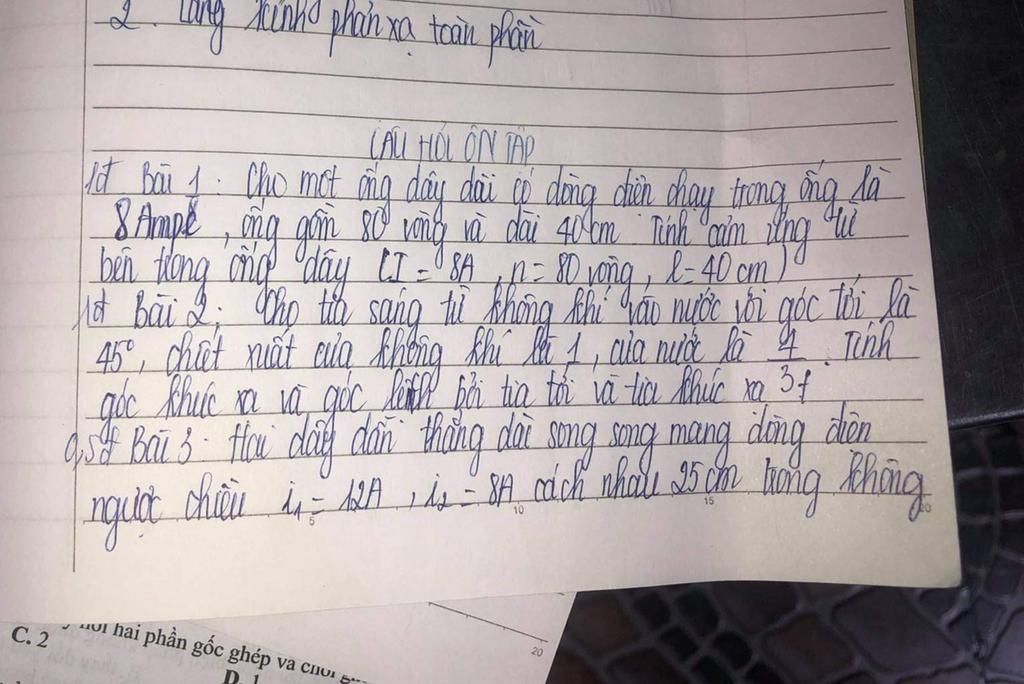 2. Lăng kính phản xạ toàn phần
CÂU HỎI ÔN TẬP
1đ Bài 1. Cho một ống dây dài có dòng điện chạy trong ống là
8Ampe, ống gồm 80 vòng và dài 40cm Tính cảm ứng từ
bên trong ống dây (I = 8A, n = 80 vòng, l = 40 cm)
1đ Bài 2: Cho tia sáng từ không khí vào nước với góc tới là
45°, chiết xuất của không khí là 1, của nước là 4/3. Tính
góc khúc xạ và góc lệch bởi tia tới và tia khúc xạ
0,5đ Bài 3. Hai dây dẫn thẳng dài song song mang dòng điện
ngược chiều i₁ = 12A, i₂ = 8A cách nhau 25cm trong không
5 10 15 20
hai phần gốc ghép và
C. 2
D. 1
20